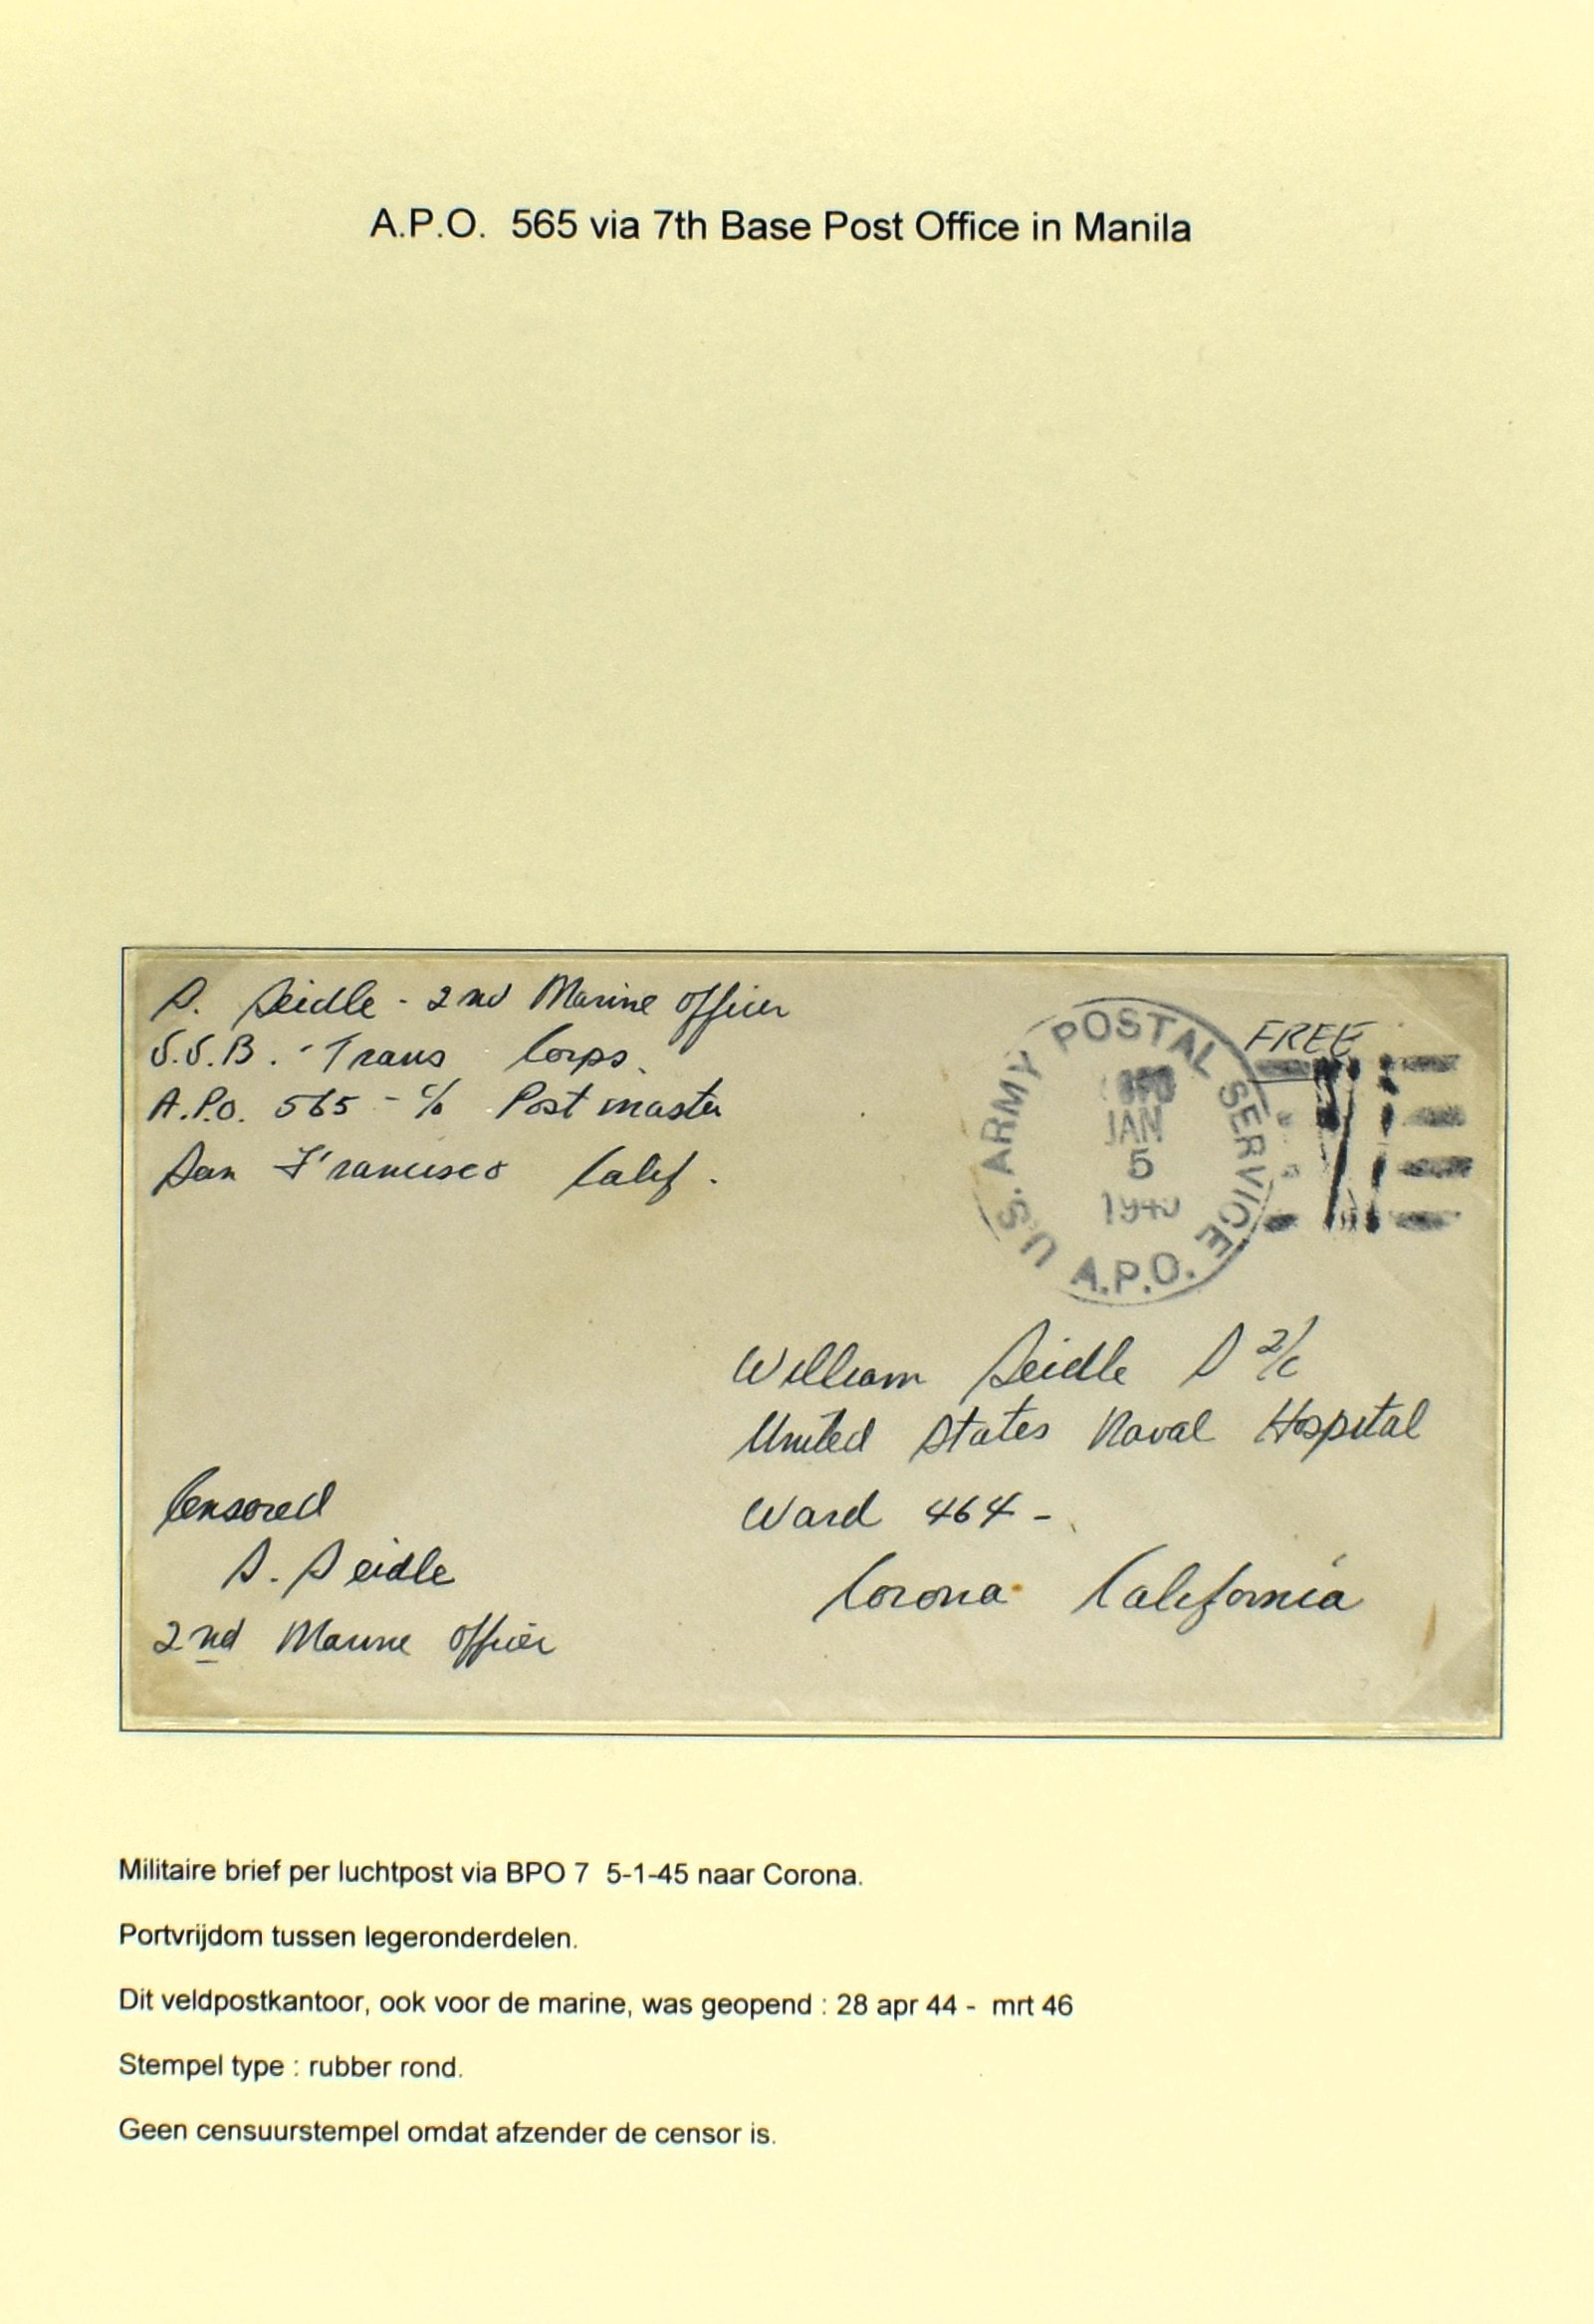 A.P.O. 565 via 7th Base Post Office in Manila
S. Seidle - 2nd Marine Officer
S.S.B. - Trans Corps.
A.P.O. 565 - c/o Post master
San Francisco Calif.
U.S. ARMY POSTAL SERVICE
A.P.O.
JAN
5
FREE
William Seidle S 2/c
United States Naval Hospital
Ward 464 -
Corona California
Censored
S. Seidle
2nd Marine Officer
Militaire brief per luchtpost via BPO 7 5-1-45 naar Corona.
Portvrijdom tussen legeronderdelen.
Dit veldpostkantoor, ook voor de marine, was geopend : 28 apr 44 - mrt 46
Stempel type : rubber rond.
Geen censuurstempel omdat afzender de censor is.